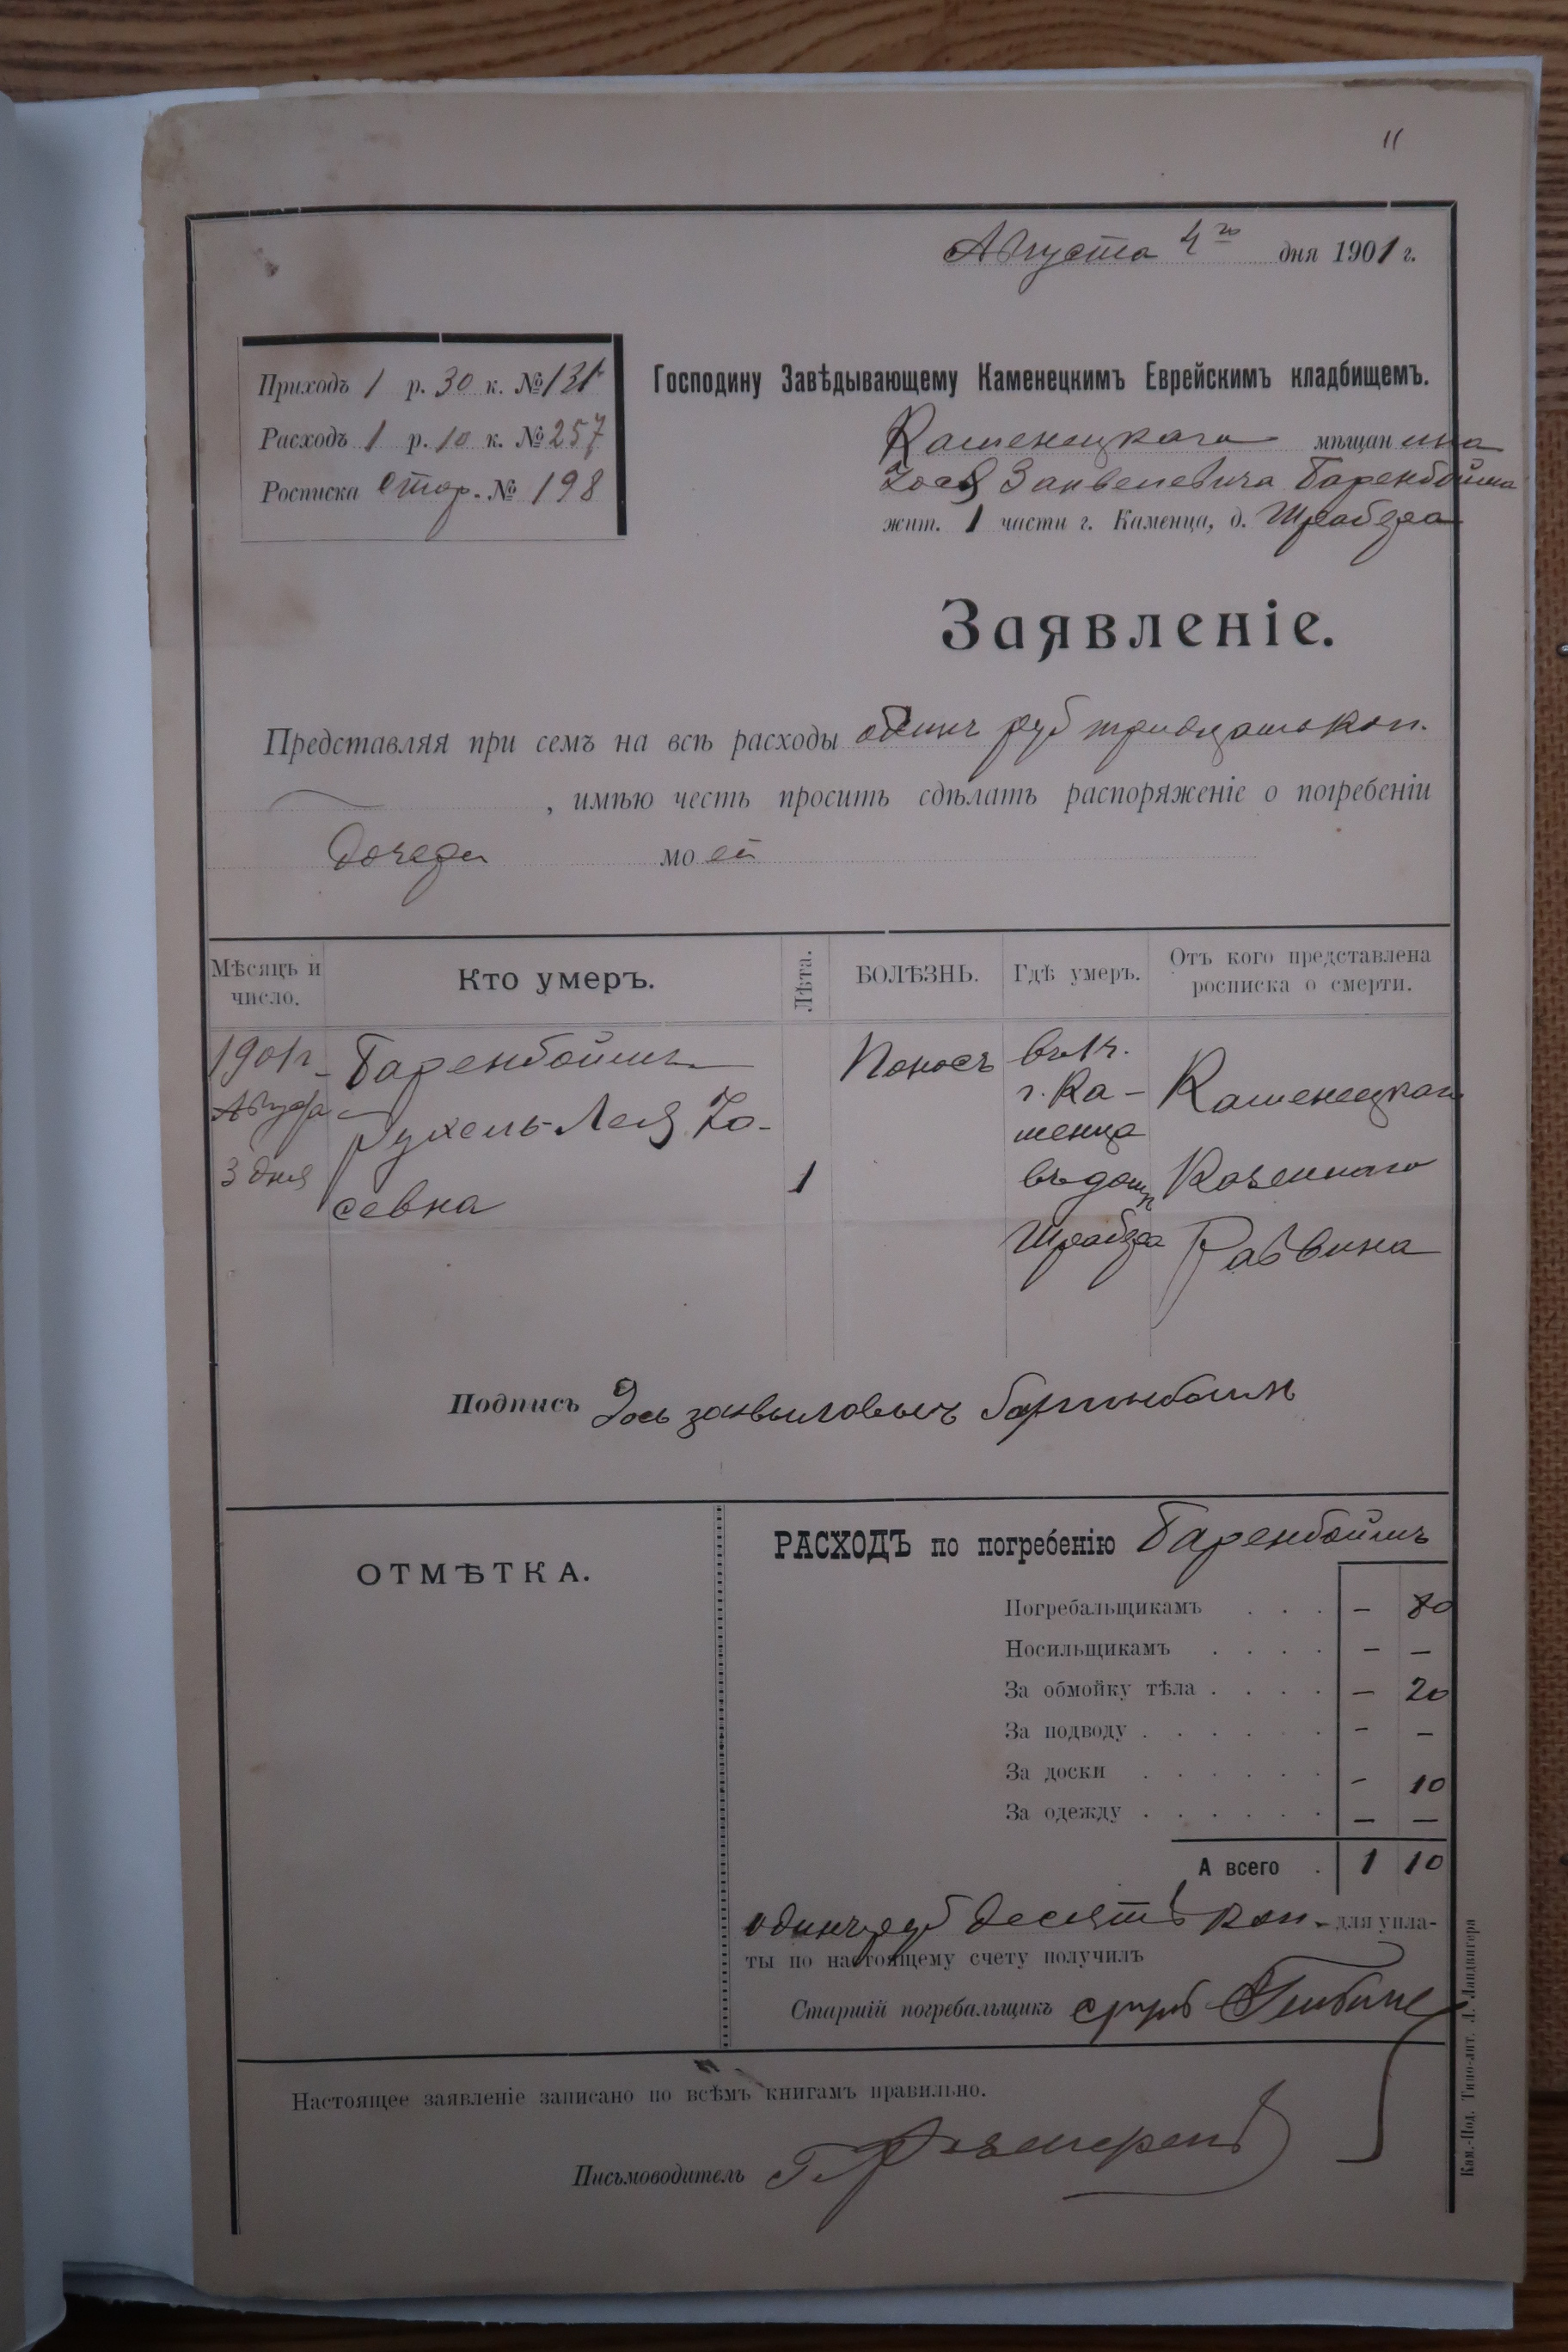 11
Августа 4го дня 1901 г.
Приходъ 1 р. 30 к. №131
Расходъ 1 р. 10 к. №257
Росписка Стор. № 198
Господину Завѣдывающему Каменецкимъ Еврейскимъ кладбищемъ.
Каменецкаго мѣщанина
Іося Занвелевича Баренбойма
жит. 1 части г. Каменца, д. Шрабера
Заявленіе.
Представляя при семъ на всѣ расходы одинъ руб тридцать коп.
, имѣю честь просить сдѣлать распоряженіе о погребеніи
дочери моей
Мѣсяцъ и число.
Кто умеръ.
Лѣта.
БОЛѢЗНЬ.
Гдѣ умеръ.
Отъ кого представлена росписка о смерти.
1901 г.
Августа
3 дня
Баренбоймъ
Рухель-Лея Іо-
севна
1
Поносъ
въ 1 ч.
г. Ка-
менца
въ домѣ
Шрабера
Каменецкаго
Казеннаго
Раввина
Подпись Иось занвыловычъ
ОТМѢТКА.
РАСХОДЪ по погребенію Баренбоймъ
Погребальщикамъ . . . – 80
Носильщикамъ . . . . – –
За обмойку тѣла . . . . – 20
За подводу . . . . . . – –
За доски . . . . . . – 10
За одежду . . . . . . – –
А всего . 1 10
одинъ руб десять коп. для упла-
ты по настоящему счету получилъ
Старшій погребальщикъ
Настоящее заявленіе записано по всѣмъ книгамъ правильно.
Письмоводитель
Кам.-Под. Типо-лит. Л. Ландвигера